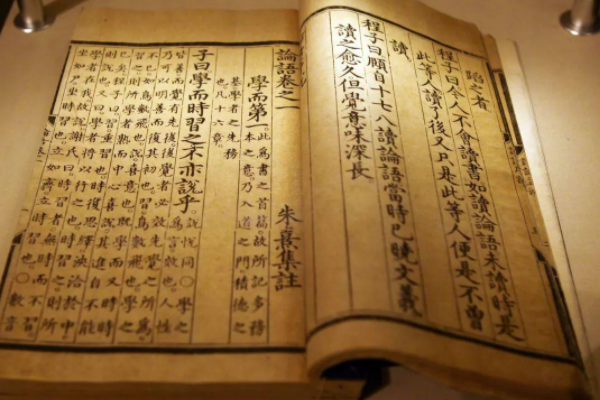 蹈之者
程子曰今人不會讀書如讀論語未讀時是
此等人讀了後又只是此等人便是不曾
讀
程子曰頤自十七八讀論語當時已曉文義
讀之愈久但覺意味深長
論語卷之一
朱熹集註
學而第一
此爲書之首篇故所記多務
本之意乃入道之門積德之
基學者之先務
也凡十六章
子曰學而時習之不亦說乎
說悅同○學之
爲言效也人性
皆善而覺有先後後覺者必效先覺之所爲
乃可以明善而復其初也習鳥數飛也學之
不已如鳥數飛也說喜意也旣學而又時時
習之則所學者熟而中心喜說其進自不能
已矣程子曰習重習也時復思繹浹洽於中
則說也又曰學者將以行之也時習之則所
學者在我故說謝氏曰時習者無時而不習
坐如尸坐時習也立如齊立時習也○數音